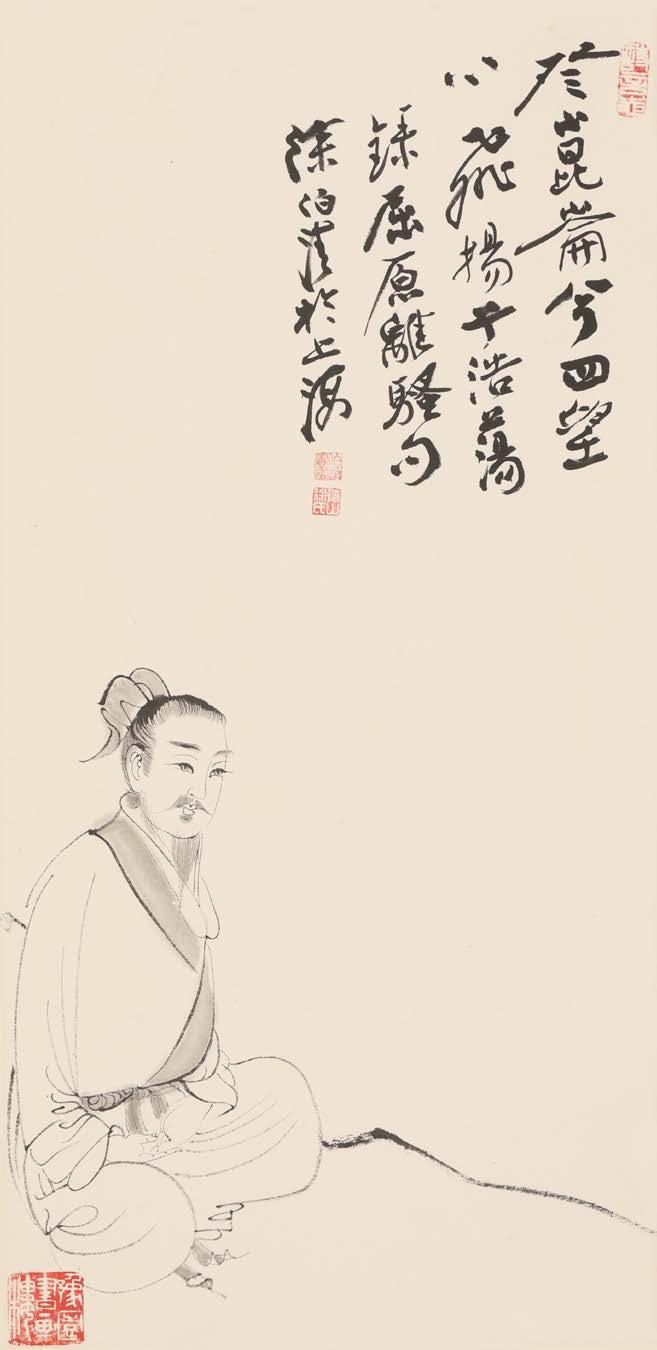 登崑崙兮四望
心飛揚兮浩蕩
錄屈原離騷句
徐伯清於上海
豫園書畫樓